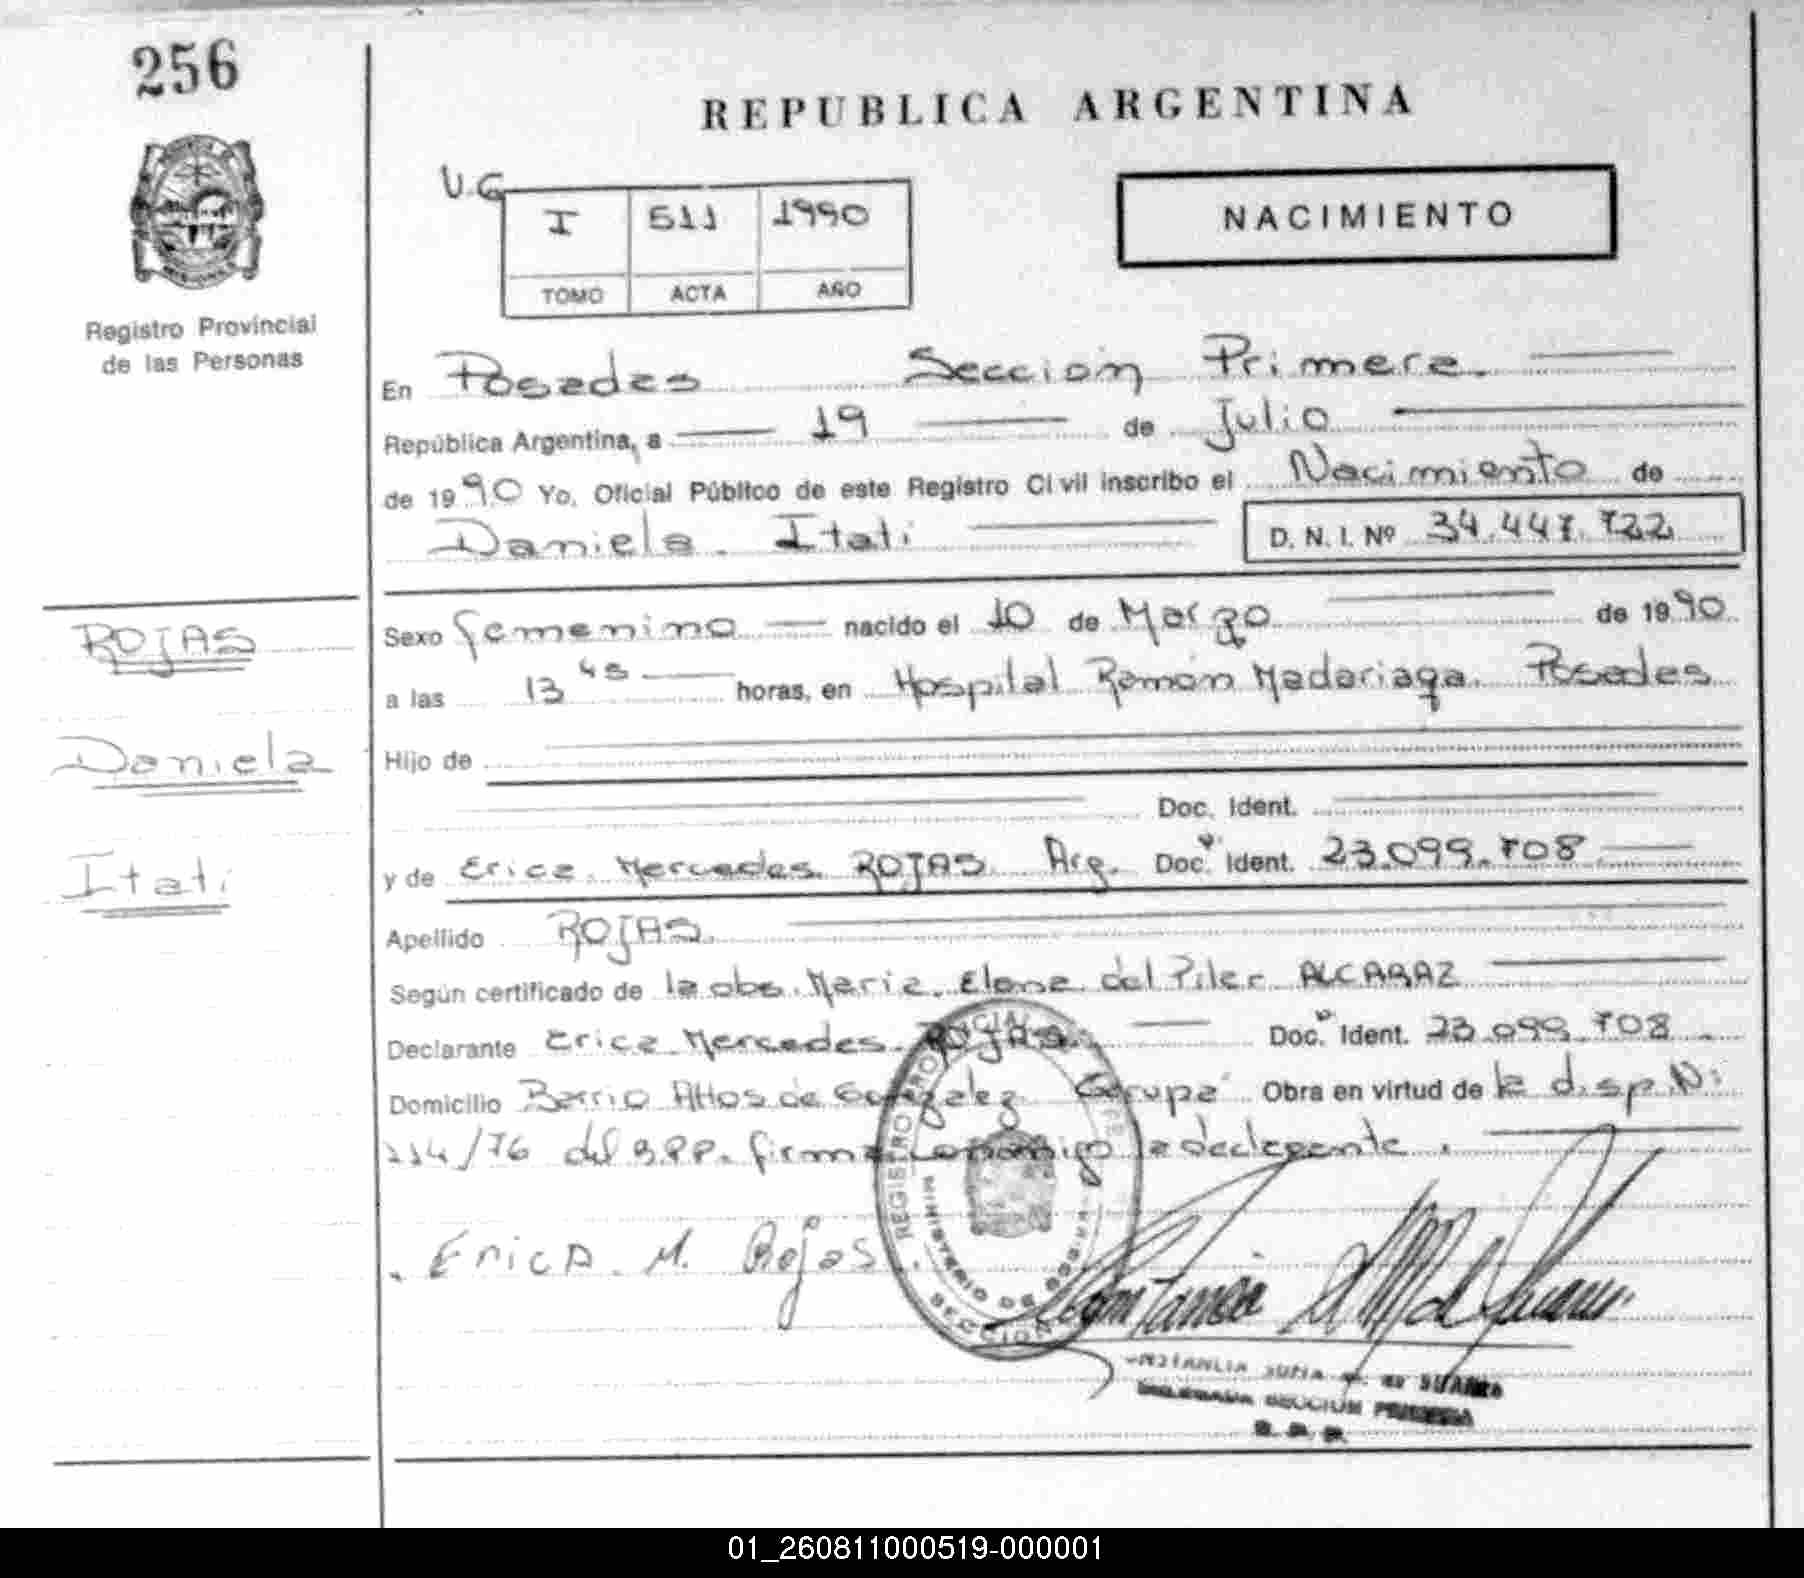 256
REPUBLICA ARGENTINA
Registro Provincial
de las Personas
U.G
I 511 1990
TOMO ACTA AÑO
NACIMIENTO
En Posadas Sección Primera.
República Argentina, a 19 de Julio
de 1990 Yo, Oficial Público de este Registro Civil inscribo el Nacimiento de
Daniela Itati D. N. I. Nº 34.447.722
ROJAS
Daniela
Itati
Sexo femenino nacido el 10 de Marzo de 1990
a las 13 45 horas, en Hospital Ramón Madariaga. Posadas
Hijo de
Doc. Ident.
y de Erica Mercedes ROJAS Arg. Doc. Ident. 23.099.708
Apellido ROJAS
Según certificado de la obs. Maria Elena del Pilar ALCARAZ
Declarante Erica Mercedes ROJAS Doc. Ident. 23.099.708
Domicilio Barrio Altos de González Garupá Obra en virtud de la disp Nº
214/76 del R.P.P. firma conmigo la declarante.
Erica M. Rojas
REGISTRO PROVINCIAL
MINISTERIO DE
SECCION
SUAREZ
SECCION PRIMERA
R. P. P.
01_260811000519-000001